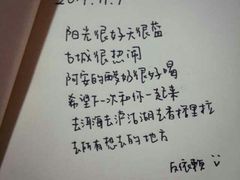 阳光很好天很蓝
古城很热闹
阿安的酸奶很好喝
希望下一次和你一起来
去洱海去泸沽湖去香格里拉
去所有想去的地方